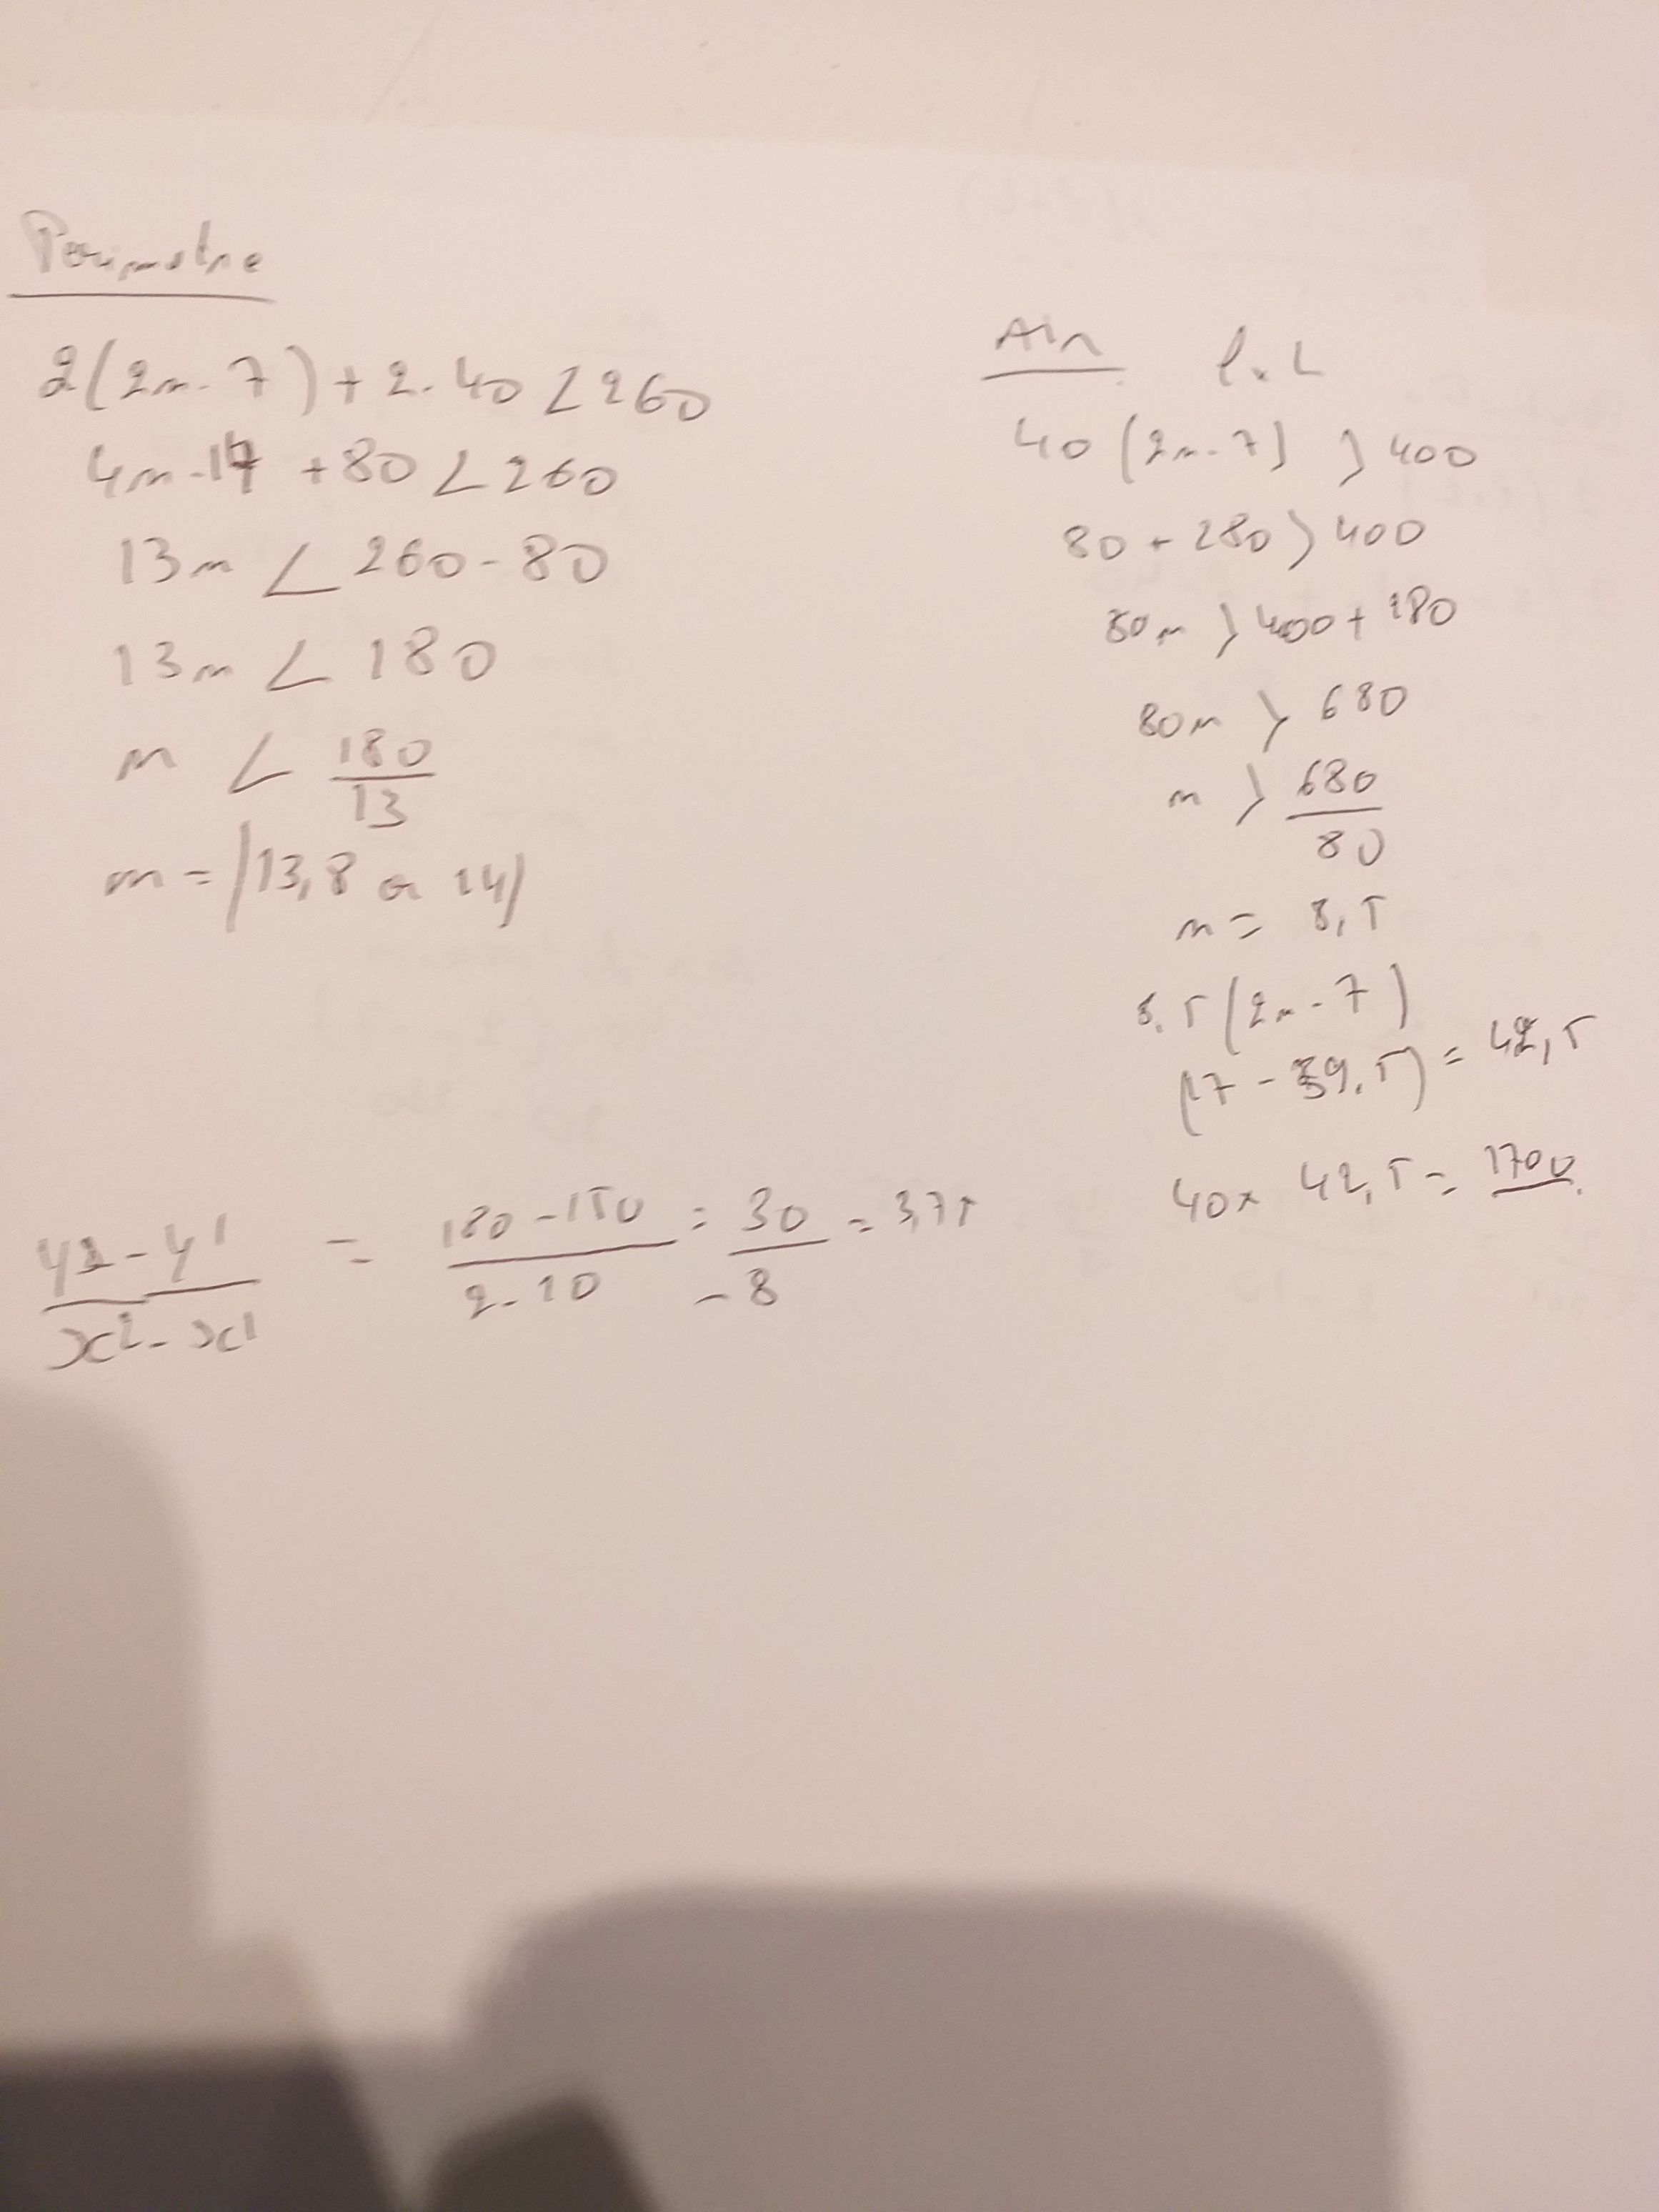 Perimetre
2(2m-7)+2.40<260
4m-14+80<260
13m<260-80
13m<180
m<180/13
m=|13,8 a 14)
Air l x L
40(2m-7)>400
80+280>400
80m>400+280
80m>680
m>680/80
m=8,5
8,5(2m-7)
(17-59,5)=42,5
40x42,5=1700
y2-y1/x2-x1=180-150/2-10=30/-8=3,75